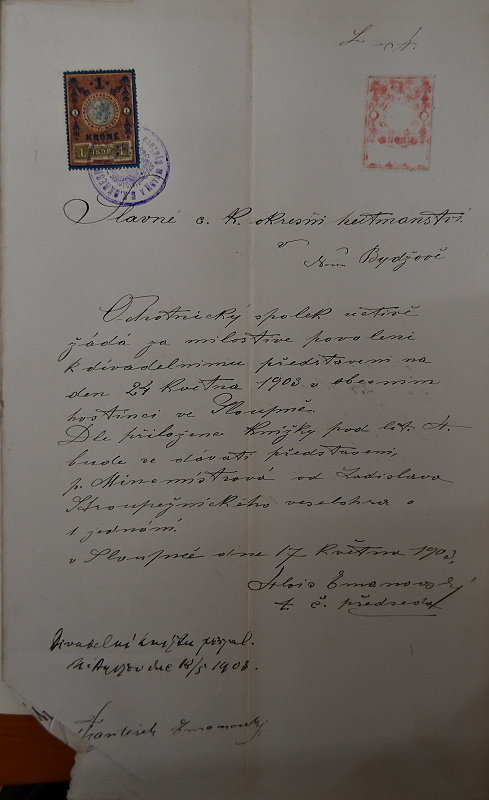 L. A.
1
KRONE
Slavné c. k. okresní hejtmanství
v
Nov. Bydžově
Ochotnický spolek uctivě
žádá za milostivé povolení
k divadelnímu představení na
den 24 května 1903 v obecním
hostinci ve Sloupně.
Dle přiložené knížky pod lit. A.
bude se dávati představení,
p. Mincmistrová od Ladislava
Stroupežnického veselohra o
1 jednání.
v Sloupně dne 17 května 1903,
Alois Emanovský
t. č. předseda
Divadelní knížku
dne 18/5 1903.
František Emanovský